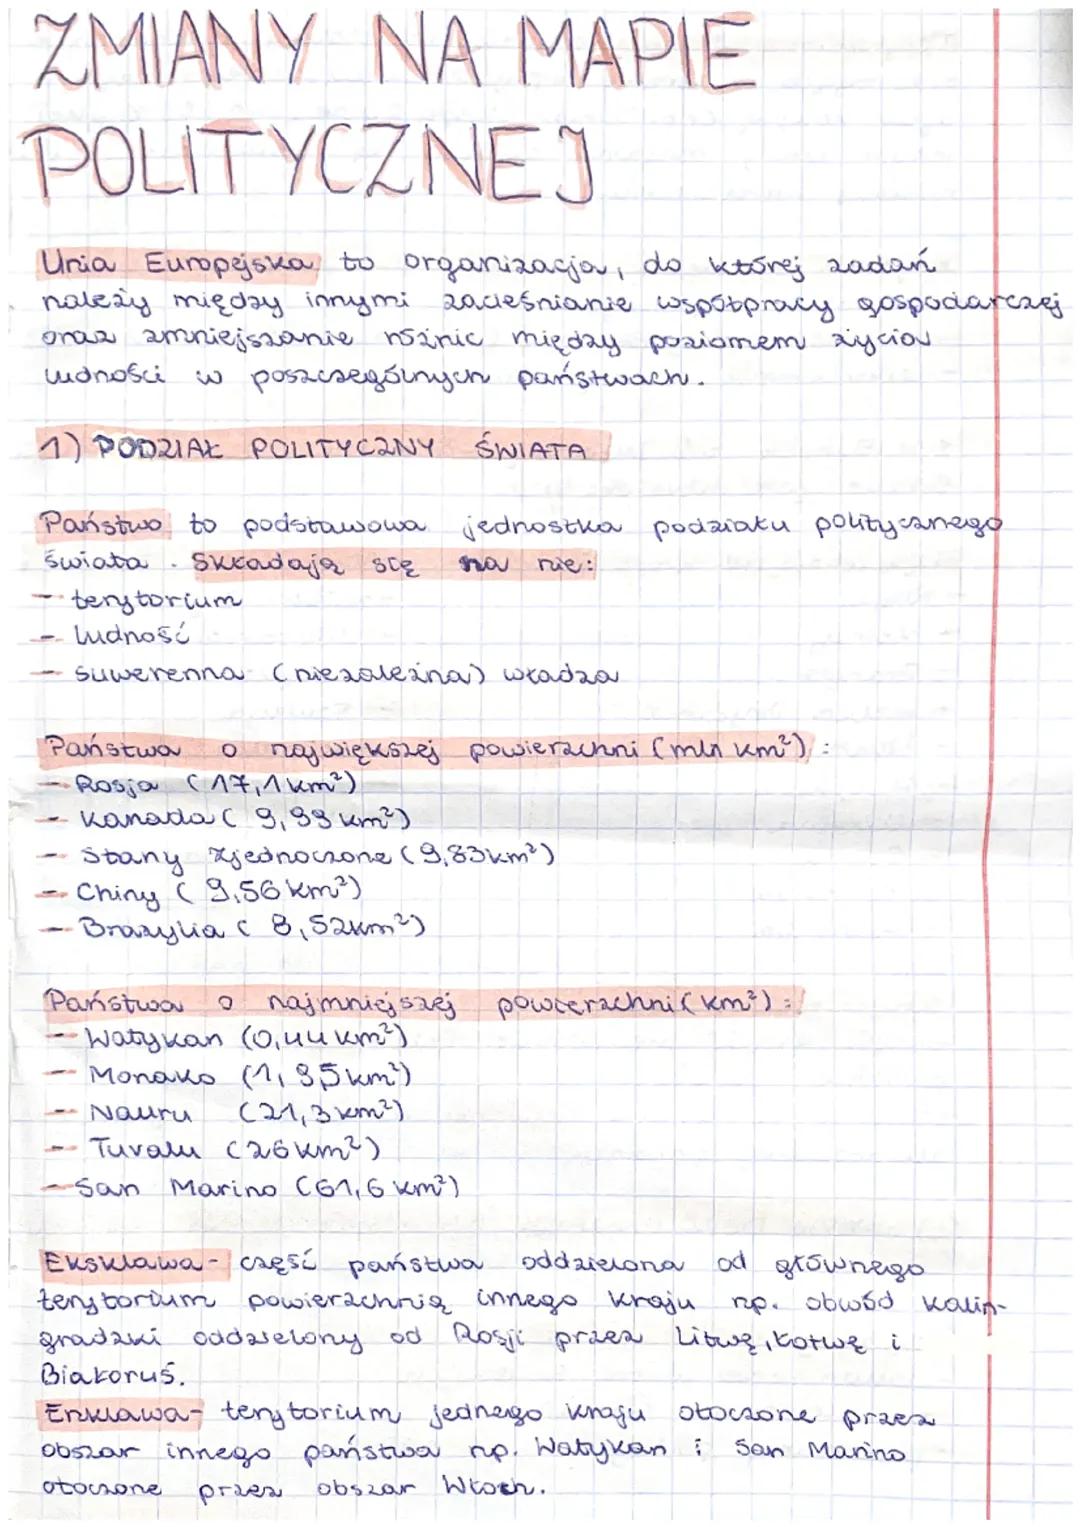 ZMIANY NA MAPIE
POLITYCZNEJ
Unia Europejska to organizacja, do której zadań
należy między innymi zacieśnianie współpracy gospodarczej
oraz zmniejszanie różnic między poziomem życia
ludności w poszczególnych państwach.
1) PODZIAŁ POLITYCZNY ŚWIATA
Państwo to podstawowa jednostka podziału politycznego
świata. Składają się na nie:
- terytorium
- ludność
- suwerenna (niezależna) władza
Państwa o największej powierzchni (mln km²):
- Rosja (17,1 km²)
- Kanada (9,99 km²)
- Stany Zjednoczone (9,83km²)
- Chiny (9,56 km²)
- Brazylia (8,52km²)
Państwa o najmniejszej powierzchni (km²):
- Watykan (0,44 km²)
- Monako (1,95 km²)
- Nauru (21,3 km²)
- Tuvalu (26 km²)
- San Marino (61,6 km²)
Eksklawa- część państwa oddzielona od głównego
terytorium powierzchnią innego kraju np. obwód kalin-
gradzki oddzielony od Rosji przez Litwę, Łotwę i
Białoruś.
Enklawa- terytorium jednego kraju otoczone przez
obszar innego państwa np. Watykan i San Marino
otoczone przez obszar Włoch.